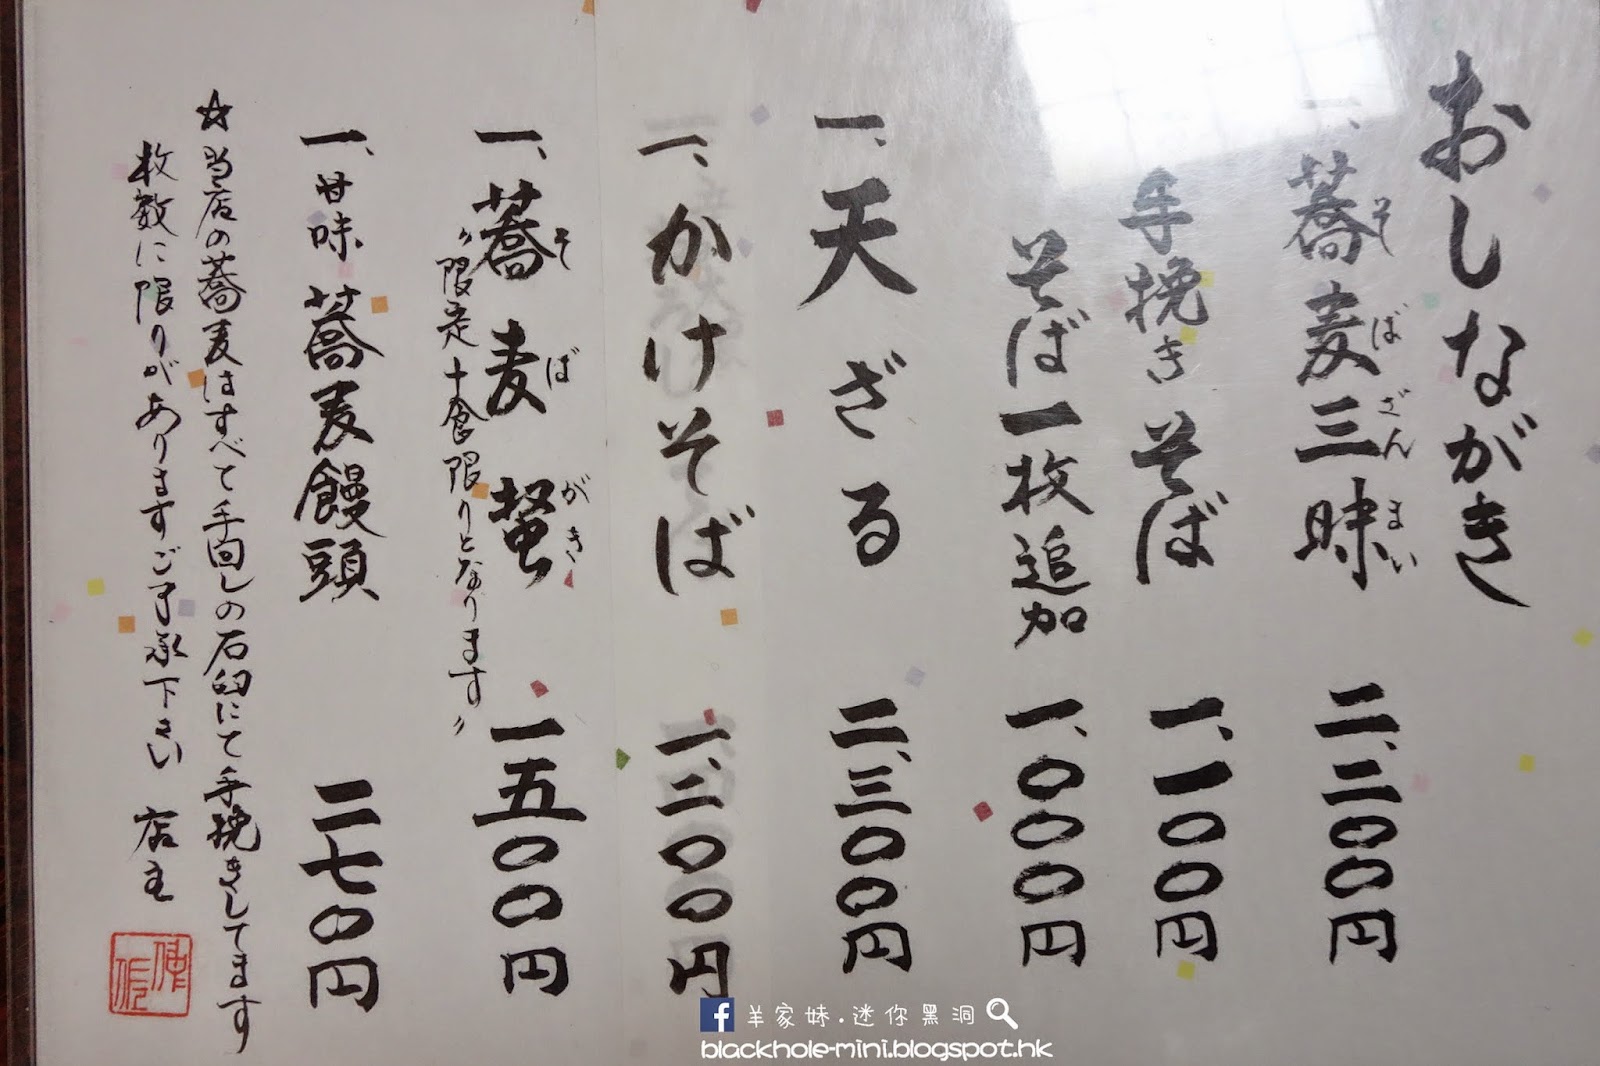 おしながき
一、蕎麦三昧 二、二〇〇円
そばざんまい
手挽きそば 一、一〇〇円
そば一枚追加 一、〇〇〇円
一、天ざる 二、三〇〇円
一、かけそば 一、二〇〇円
一、蕎麦蟹 一五〇〇円
そばがき
〃限定十食限りとなります〃
一、甘味 蕎麦饅頭 二七〇円
☆当店の蕎麦はすべて手回しの石臼にて手挽きしてます
枚数に限りがありますご了承下さい 店主
羊家妹.迷你黑洞
blackhole-mini.blogspot.hk